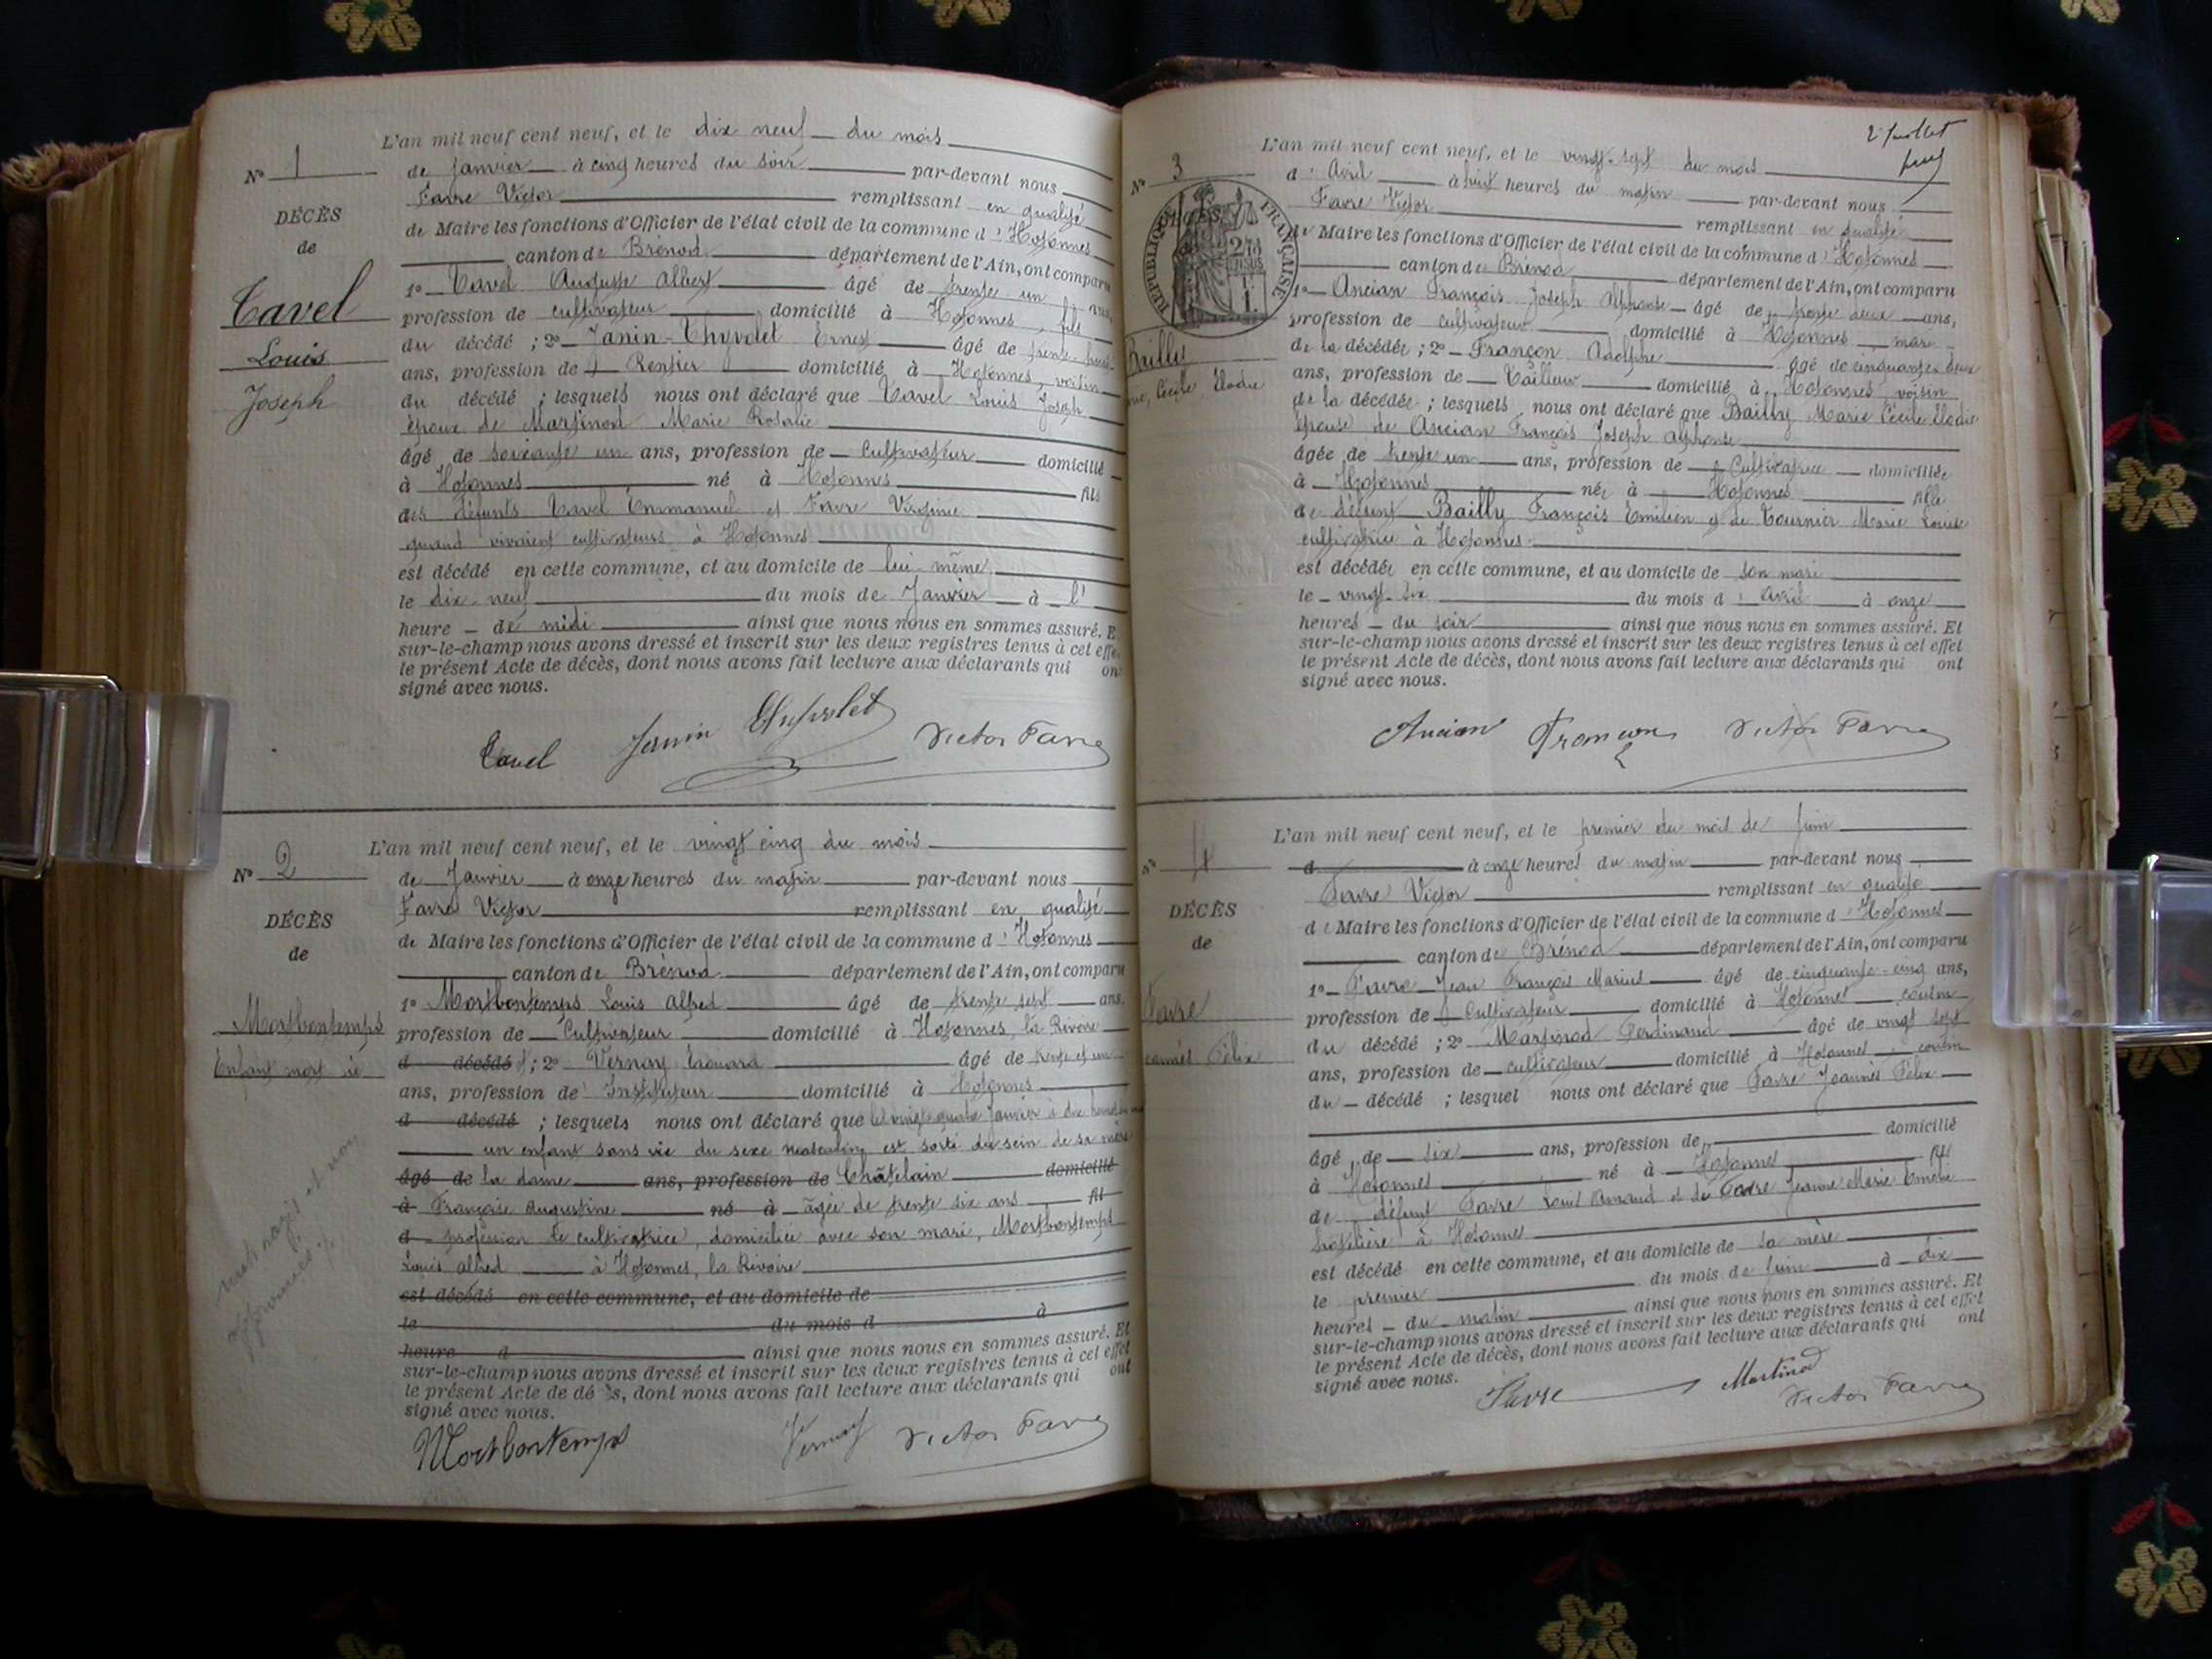 L'an mil neuf cent neuf, et le dix neuf du mois
N° 1
de Janvier à cinq heures du soir par-devant nous
Favre Victor remplissant en qualité
DÉCÈS
de Maire les fonctions d'Officier de l'état civil de la commune d' Hotonnes
de
canton de Brénod département de l'Ain, ont comparu
1° Tavel Auguste Albert âgé de trente un ans,
Tavel
profession de cultivateur domicilié à Hotonnes, fils
Louis
du décédé ; 2° Janin-Thyvolet Ernest âgé de trente-huit
ans, profession de Rentier domicilié à Hotonnes, voisin
Joseph
du décédé ; lesquels nous ont déclaré que Tavel Louis Joseph
époux de Martinod Marie Rosalie
âgé de soixante un ans, profession de Cultivateur domicilié
à Hotonnes né à Hotonnes fils
des défunts Tavel Emmanuel et Favre Virginie
quand vivaient cultivateurs à Hotonnes
est décédé en cette commune, et au domicile de lui-même
le dix-neuf du mois de Janvier à l'
heure de midi ainsi que nous nous en sommes assuré. E
sur-le-champ nous avons dressé et inscrit sur les deux registres tenus à cet effe
le présent Acte de décès, dont nous avons fait lecture aux déclarants qui on
signé avec nous.
Tavel Janin Thyvolet Victor Favre
L'an mil neuf cent neuf, et le vingt cinq du mois
N° 2
de Janvier à onze heures du matin par-devant nous
Favre Victor remplissant en qualité
DÉCÈS
de Maire les fonctions d'Officier de l'état civil de la commune d' Hotonnes
de
canton de Brénod département de l'Ain, ont comparu
1° Mortbontemps Louis Alfred âgé de trente sept ans.
Mortbontemps
profession de Cultivateur domicilié à Hotonnes, la Rivoire
Enfant mort né
d décédé ; 2° Vernay Edouard âgé de trente et un
ans, profession de Instituteur domicilié à Hotonnes
d décédé ; lesquels nous ont déclaré que le vingt quatre Janvier à dix heures
un enfant sans vie du sexe masculin est sorti du sein de sa mère
âgé de la dame ans, profession de Châtelain domicilié
à Françoise Augustine né à âgée de trente six ans fil
d profession de cultivatrice, domiciliée avec son mari, Mortbontemps
Louis Alfred à Hotonnes, la Rivoire
est décédé en cette commune, et au domicile de
le du mois d à
heure d ainsi que nous nous en sommes assuré. Et
sur-le-champ nous avons dressé et inscrit sur les deux registres tenus à cet effet
le présent Acte de décès, dont nous avons fait lecture aux déclarants qui ont
signé avec nous.
Mortbontemps Vernay Victor Favre
2e feuillet
L'an mil neuf cent neuf, et le vingt-sept du mois
N° 3
d' Avril à huit heures du matin par-devant nous
Favre Victor remplissant en qualité
RÉPUBLIQUE FRANÇAISE
de Maire les fonctions d'Officier de l'état civil de la commune d' Hotonnes
canton de Brénod département de l'Ain, ont comparu
1° Ancian François Joseph Alphonse âgé de trente deux ans,
profession de cultivateur domicilié à Hotonnes, mari
Bailly
de la décédée ; 2° Françon Adolphe âgé de cinquante-deux
Cécile Elodie
ans, profession de Tailleur domicilié à Hotonnes, voisin
de la décédée ; lesquels nous ont déclaré que Bailly Marie Cécile Elodie
épouse de Ancian François Joseph Alphonse
âgée de trente un ans, profession de Cultivatrice domiciliée
à Hotonnes née à Hotonnes fille
de défunt Bailly François Emilien et de Tournier Marie Louise
cultivatrice à Hotonnes
est décédée en cette commune, et au domicile de son mari
le vingt-six du mois d' Avril à onze
heures du soir ainsi que nous nous en sommes assuré. Et
sur-le-champ nous avons dressé et inscrit sur les deux registres tenus à cet effet
le présent Acte de décès, dont nous avons fait lecture aux déclarants qui ont
signé avec nous.
Ancian Françon Victor Favre
L'an mil neuf cent neuf, et le premier du mois de Juin
N° 4
d à onze heures du matin par-devant nous
Favre Victor remplissant en qualité
DÉCÈS
de Maire les fonctions d'Officier de l'état civil de la commune d' Hotonnes
de
canton de Brénod département de l'Ain, ont comparu
1° Favre Jean François Marius âgé de cinquante-cinq ans,
Favre
profession de Cultivateur domicilié à Hotonnes cousin
du décédé ; 2° Martinod Ferdinand âgé de vingt sept
Félix
ans, profession de cultivateur domicilié à Hotonnes, cousin
du décédé ; lesquel nous ont déclaré que Favre Joannès Félix
âgé de six ans, profession de domicilié
à Hotonnes né à Hotonnes fils
de défunt Favre Louis Amand et de Favre Jeanne Marie Emélie
hôtelière à Hotonnes
est décédé en cette commune, et au domicile de sa mère
le premier du mois de Juin à dix
heures du matin ainsi que nous nous en sommes assuré. Et
sur-le-champ nous avons dressé et inscrit sur les deux registres tenus à cet effet
le présent Acte de décès, dont nous avons fait lecture aux déclarants qui ont
signé avec nous.
Favre Martinod Victor Favre